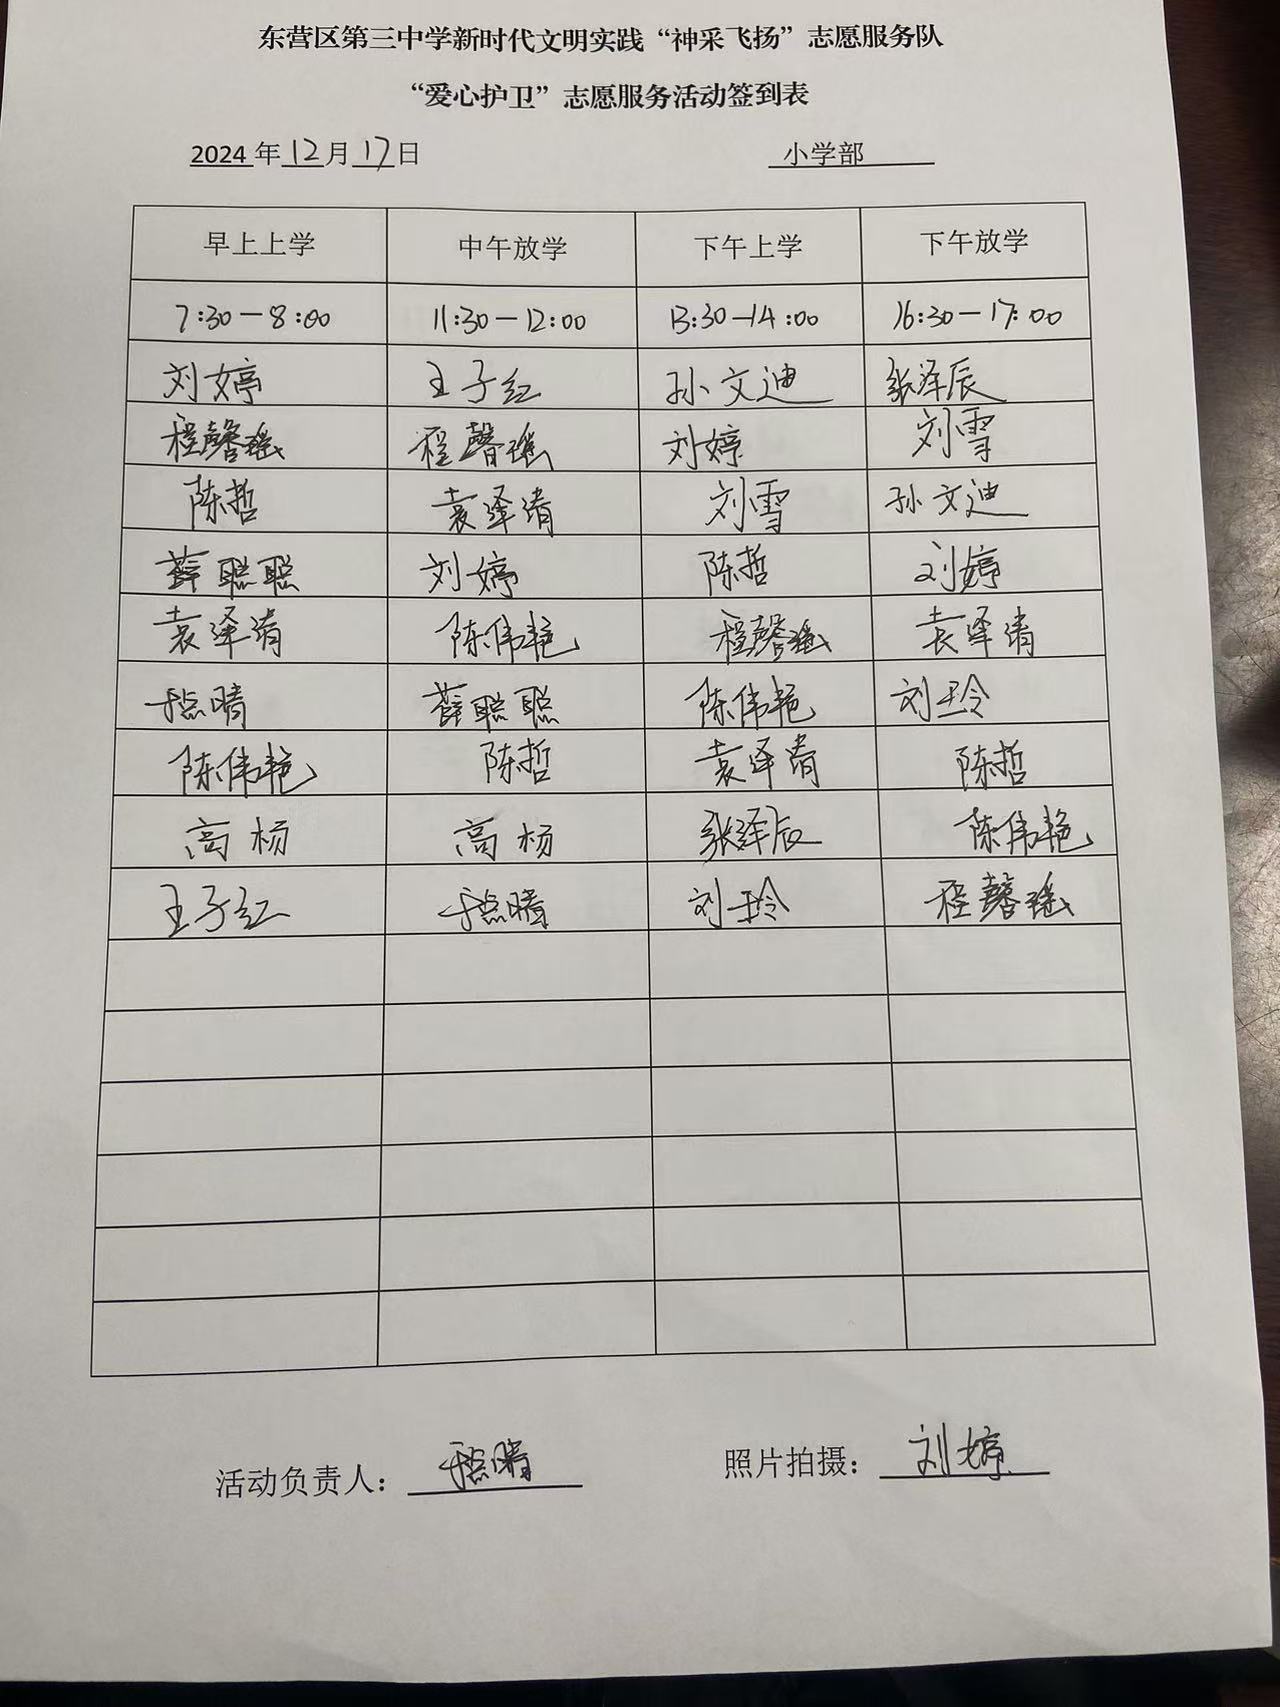 东营区第三中学新时代文明实践“神采飞扬”志愿服务队
“爱心护卫”志愿服务活动签到表
2024年12月17日 小学部
早上上学 中午放学 下午上学 下午放学
7:30—8:00 11:30—12:00 13:30—14:00 16:30—17:00
刘婷 王子红 孙文迪 张泽辰
程馨瑶 程馨瑶 刘婷 刘雪
陈哲 袁泽清 刘雪 孙文迪
薛聪聪 刘婷 陈哲 刘婷
袁泽清 陈伟艳 程馨瑶 袁泽清
晴 薛聪聪 陈伟艳 刘玲
陈伟艳 陈哲 袁泽清 陈哲
高杨 高杨 张泽辰 陈伟艳
王子红 晴 刘玲 程馨瑶
活动负责人：晴 照片拍摄：刘婷